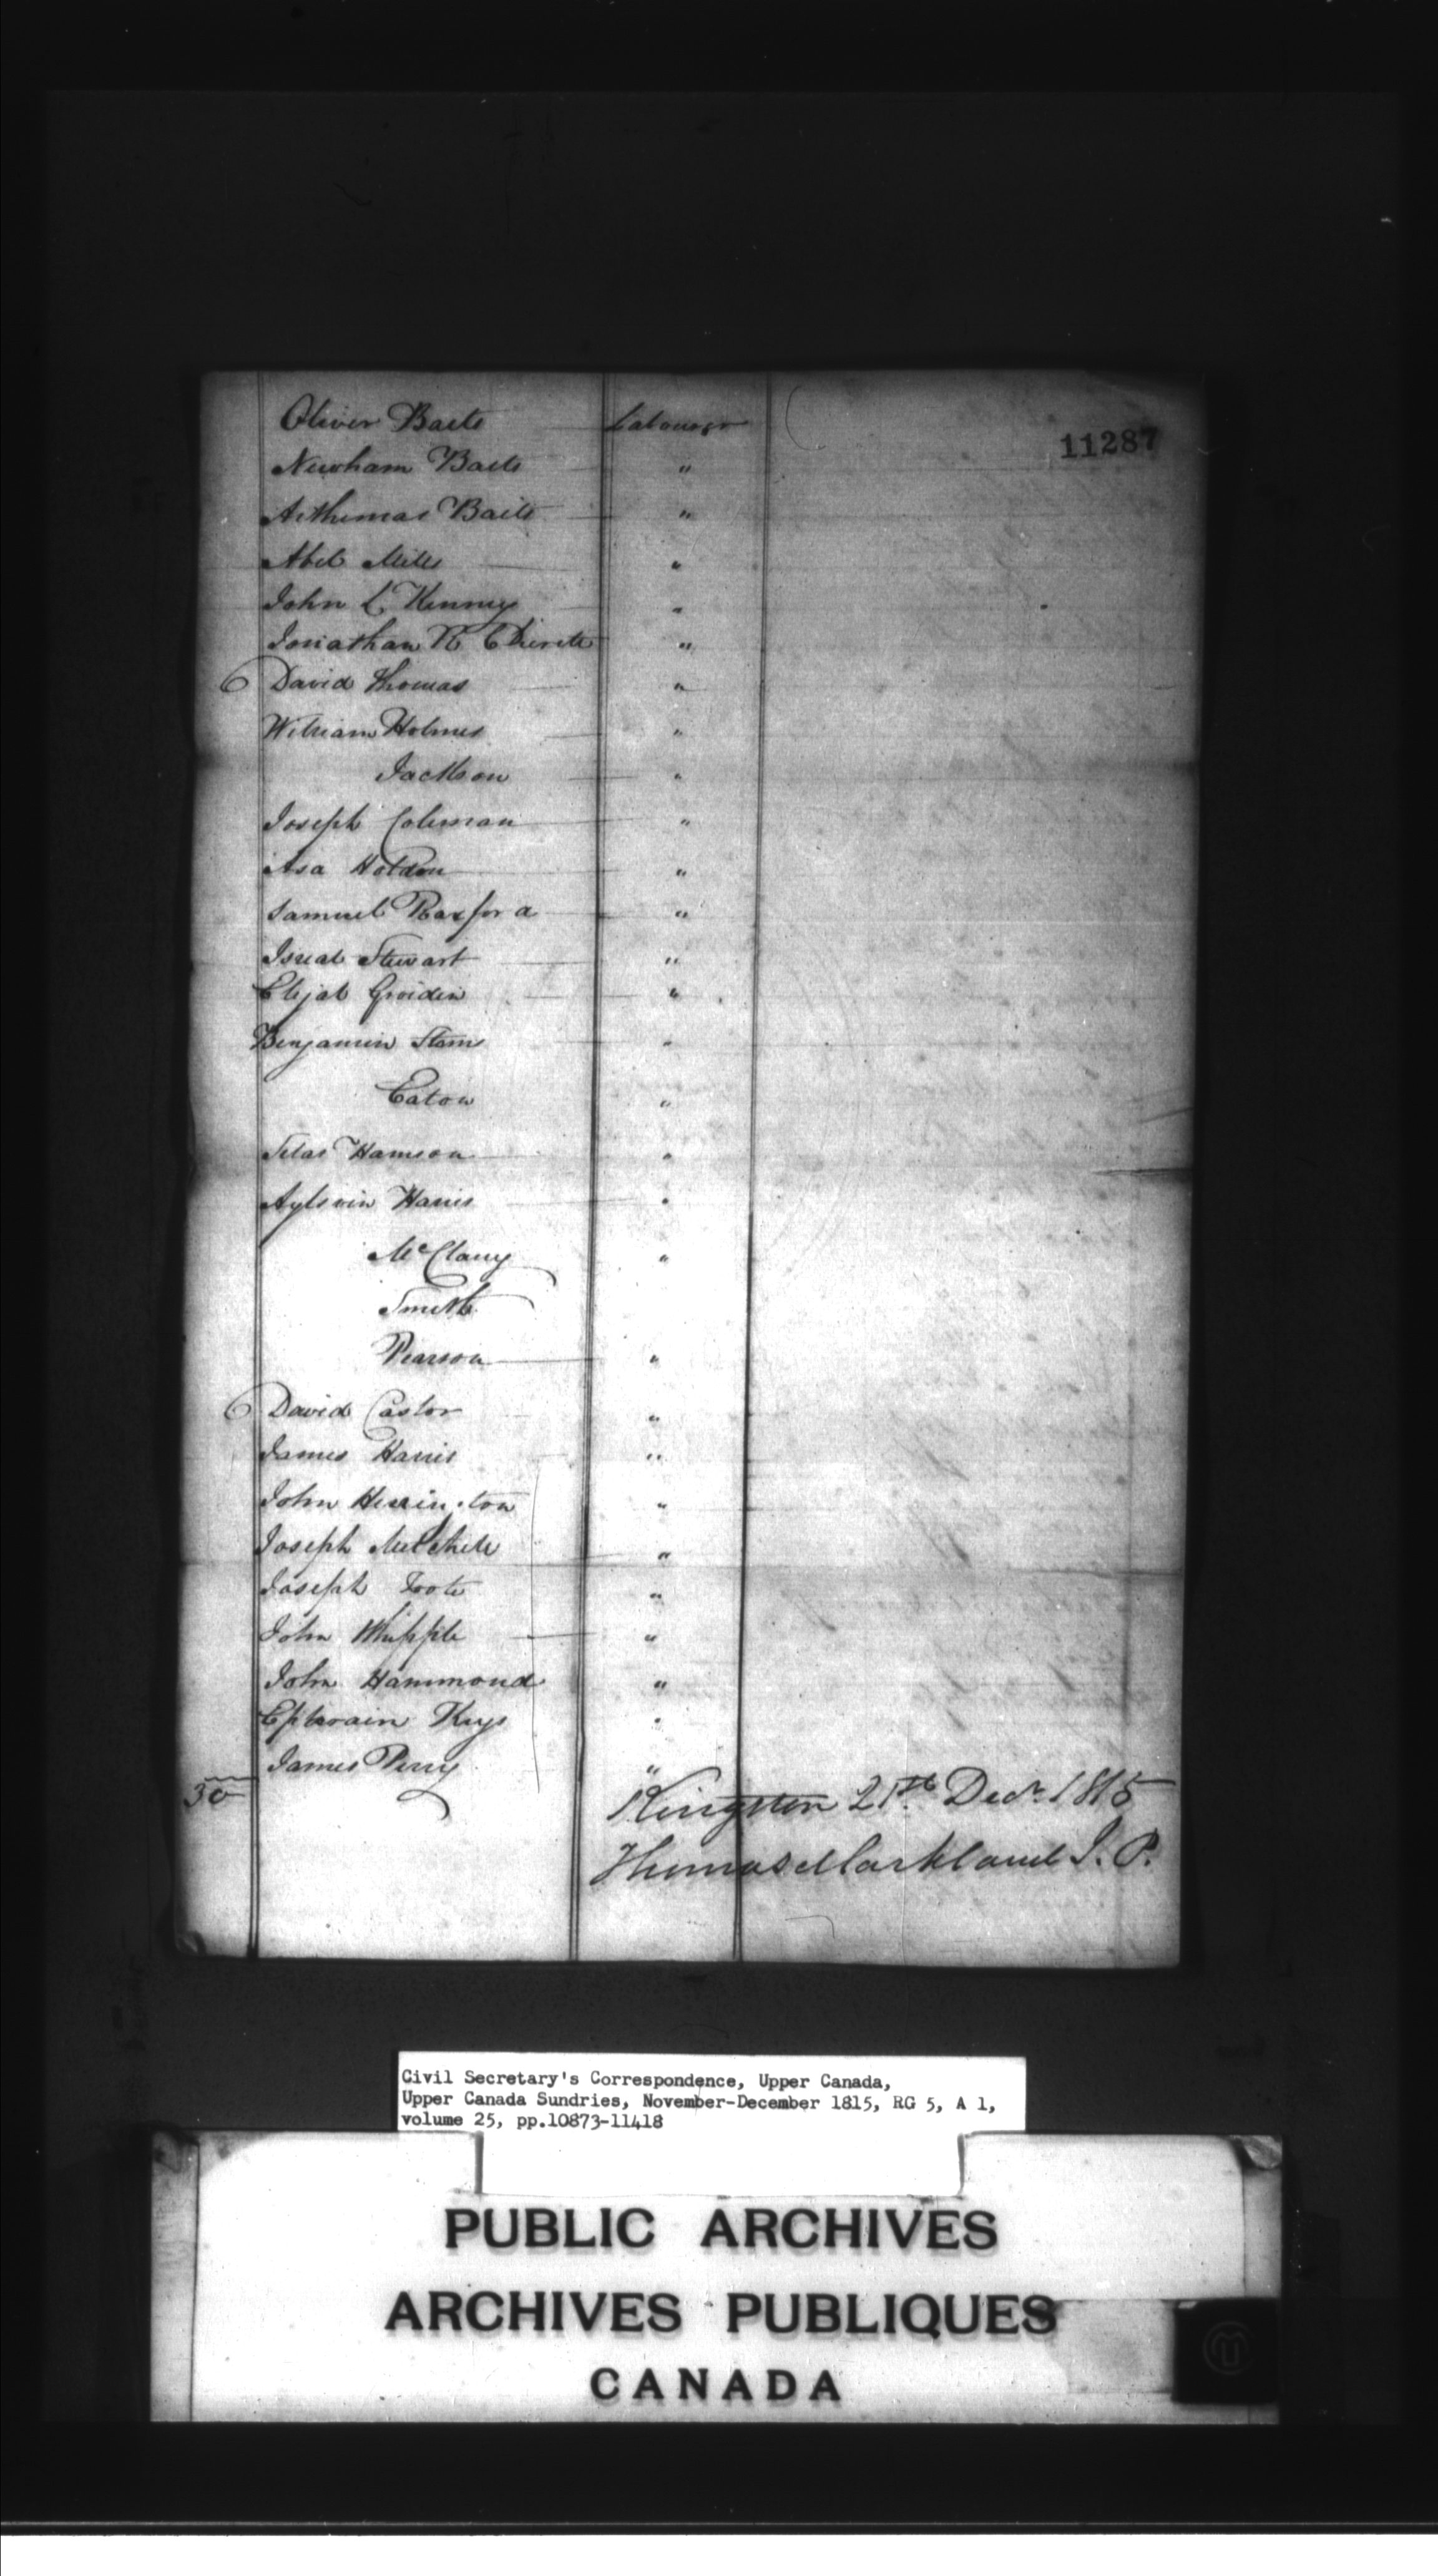 11287
Oliver Baets Labourer
Newham Baets "
Arthemas Baets "
Abel Mills "
John L Kenney "
Jonathan R "
David Thomas "
William Holmes "
Jackson "
Joseph Coleman "
Asa Holdon "
Samuel Raxford "
Isreal Stewart "
Elijah "
Benjamin "
Eaton "
Silas Hamson "
Harris "
McClany "
Smith
Pearson "
David Castor "
James Harris "
John Herrington "
Joseph Mitchell "
Joseph Foote "
John Whipple "
John Hammond "
Ephraim Keys "
James Perry "
30
Kingston 21st Decr. 1815
Thomas Markland J. P.
Civil Secretary's Correspondence, Upper Canada,
Upper Canada Sundries, November-December 1815, RG 5, A 1,
volume 25, pp.10873-11418
PUBLIC ARCHIVES
ARCHIVES PUBLIQUES
CANADA